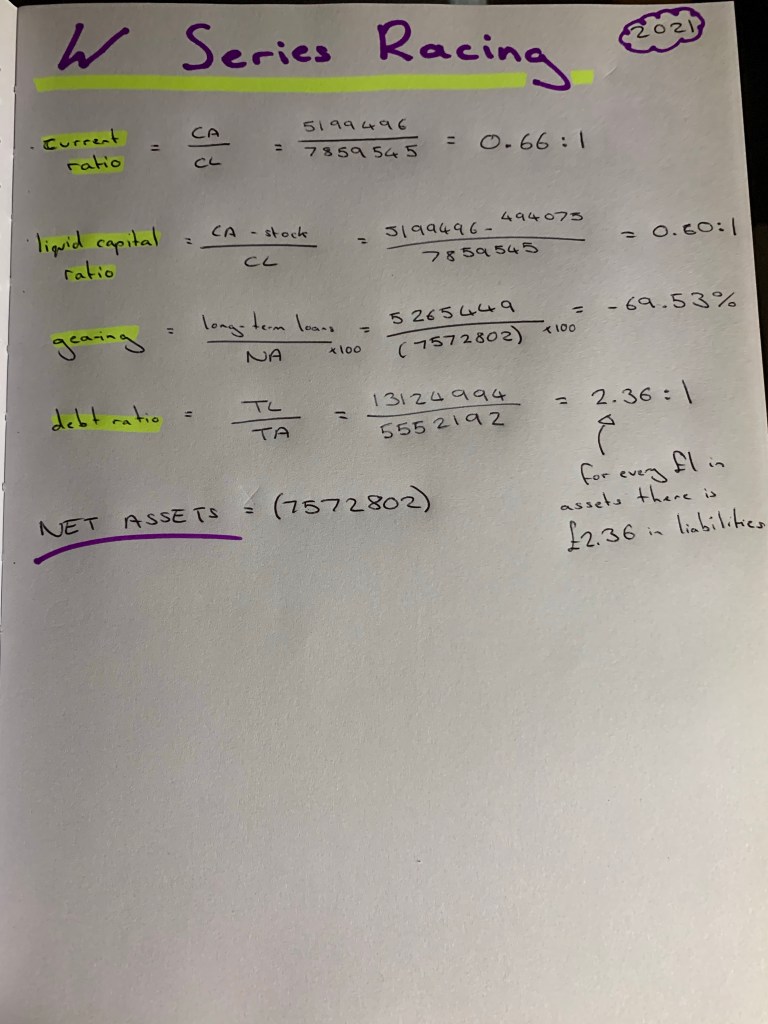 W Series Racing
2021
· Current ratio = CA / CL = 5199496 / 7859545 = 0.66 : 1
· liquid capital ratio = CA - stock / CL = 5199496 - 494075 / 7859545 = 0.60 : 1
gearing = long-term loans / NA ×100 = 5265449 / (7572802) ×100 = -69.53%
debt ratio = TL / TA = 13124994 / 5552192 = 2.36 : 1
for every £1 in
assets there is
£2.36 in liabilities
NET ASSETS = (7572802)